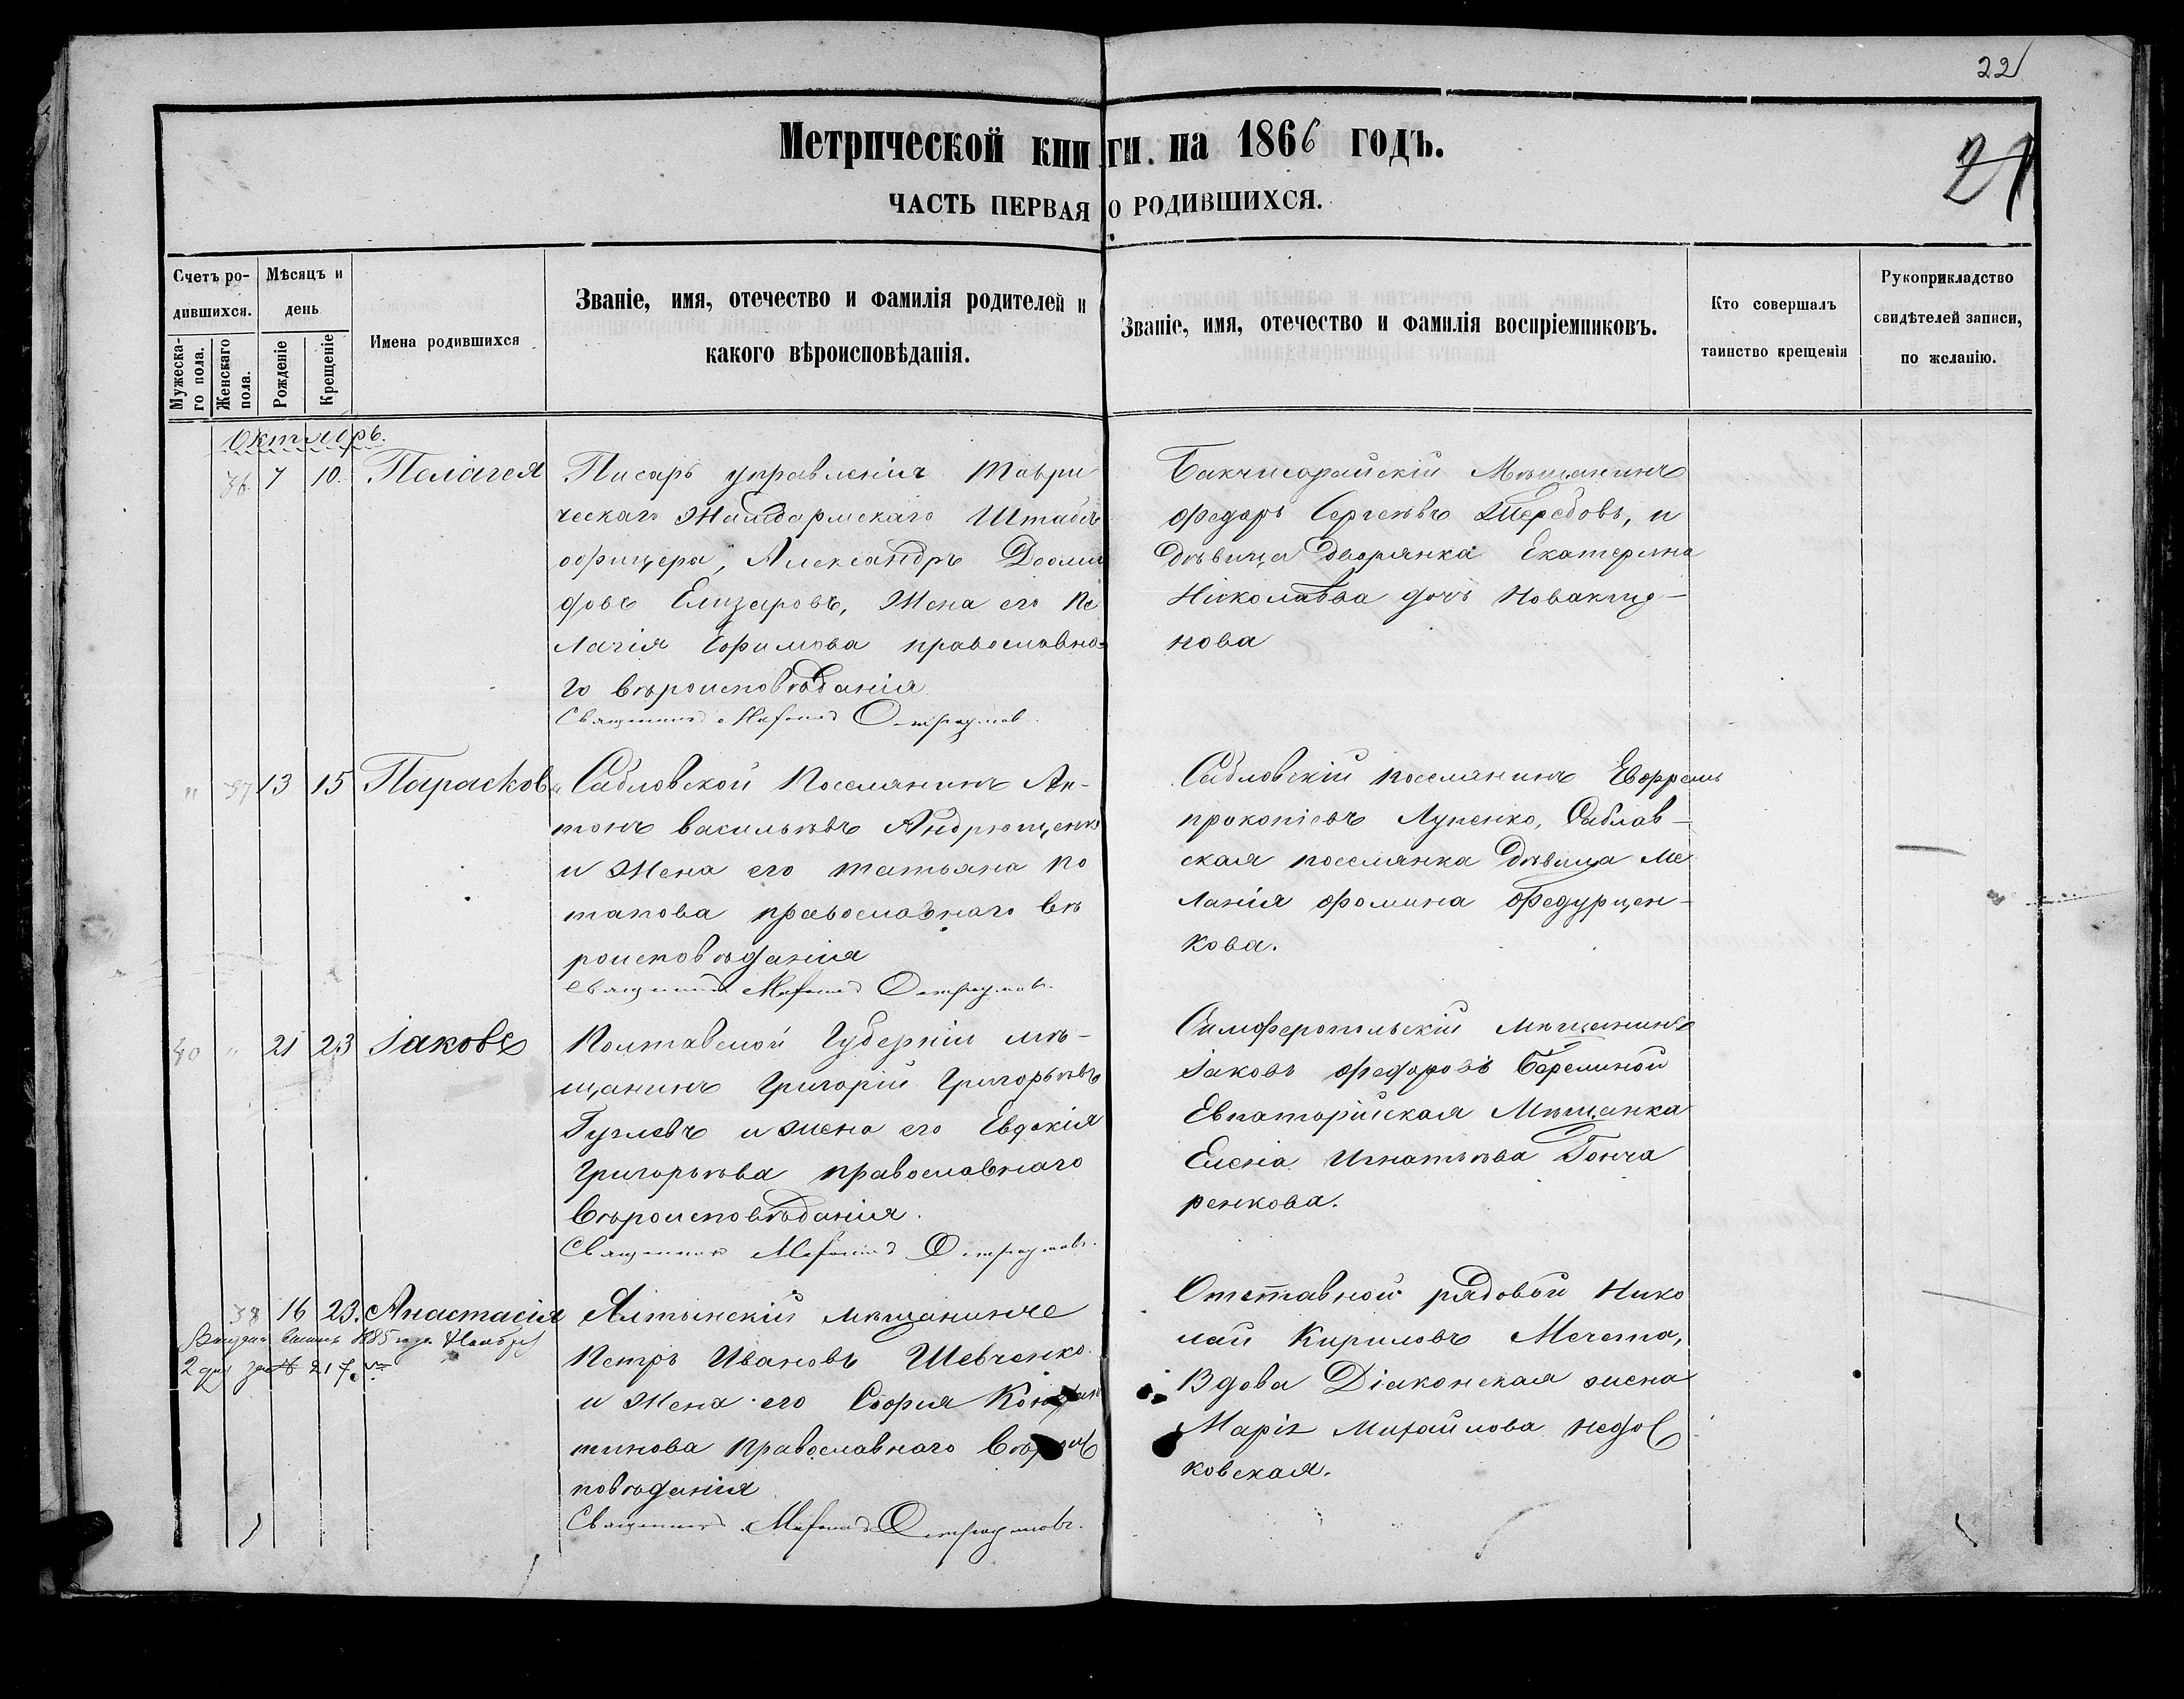 22
Метрической книги на 1866 годъ.
21
ЧАСТЬ ПЕРВАЯ О РОДИВШИХСЯ.
Счетъ ро-
дившихся.
Мужеска-
го пола.
Женскаго
пола.
Мѣсяцъ и
день
Рожденіе
Крещеніе
Имена родившихся
Званіе, имя, отечество и фамилія родителей и
какого вѣроисповѣданія.
Званіе, имя, отечество и фамилія воспріемниковъ.
Кто совершалъ
таинство крещенія
Рукоприкладство
свидѣтелей записи,
по желанію.
Октябрь.
36. 7 10. Пелагея
Писарь управленія Таври
ческаго Жандармскаго Штабъ
офицера, Александръ
Елизаровъ, Жена его Пе
лагія Ефимова православна-
го вѣроисповѣданія
Священникъ
Бакчисарайскій Мѣщанинъ
Федоръ Сергѣевъ и
дѣвица дворянка Екатерина
Николаева дочь
нова
" 37 13 15 Парасков
Сабловской Поселянинъ Ан-
тонъ васильевъ Андрющенко
и Жена его татьяна по
тапова православнаго вѣ
роисповѣданія
Священникъ
Сабловскій поселянинъ Ефремъ
прокопіевъ Луценко, Саблав-
ская поселянка дѣвица Ме
ланія фомина Федурцен-
кова.
40 " 21 23 Іаковъ
Полтавской Губерніи мѣ-
щанинъ Григорій Григорьевъ
и жена его Евдокія
Григорьева православнаго
Вѣроисповѣданія.
Священникъ
Симферопольскій мѣщанинъ
Іаковъ Федоровъ
Евпаторійская Мѣщанка
Елена Игнатьева Гонча
ренкова.
38 16 23. Анастасія
1885 года Ноября
2 дня за № 217
Ялтинскій мѣщанинъ
Петръ Ивановъ Шевченко
и Жена его Софія Констан
тинова Православнаго Вѣроис
повѣданія
Священникъ
Отставной рядовой Нико
лай Кириловъ Мечета,
Вдова Діаконская жена
Марія Михайлова
ковская.